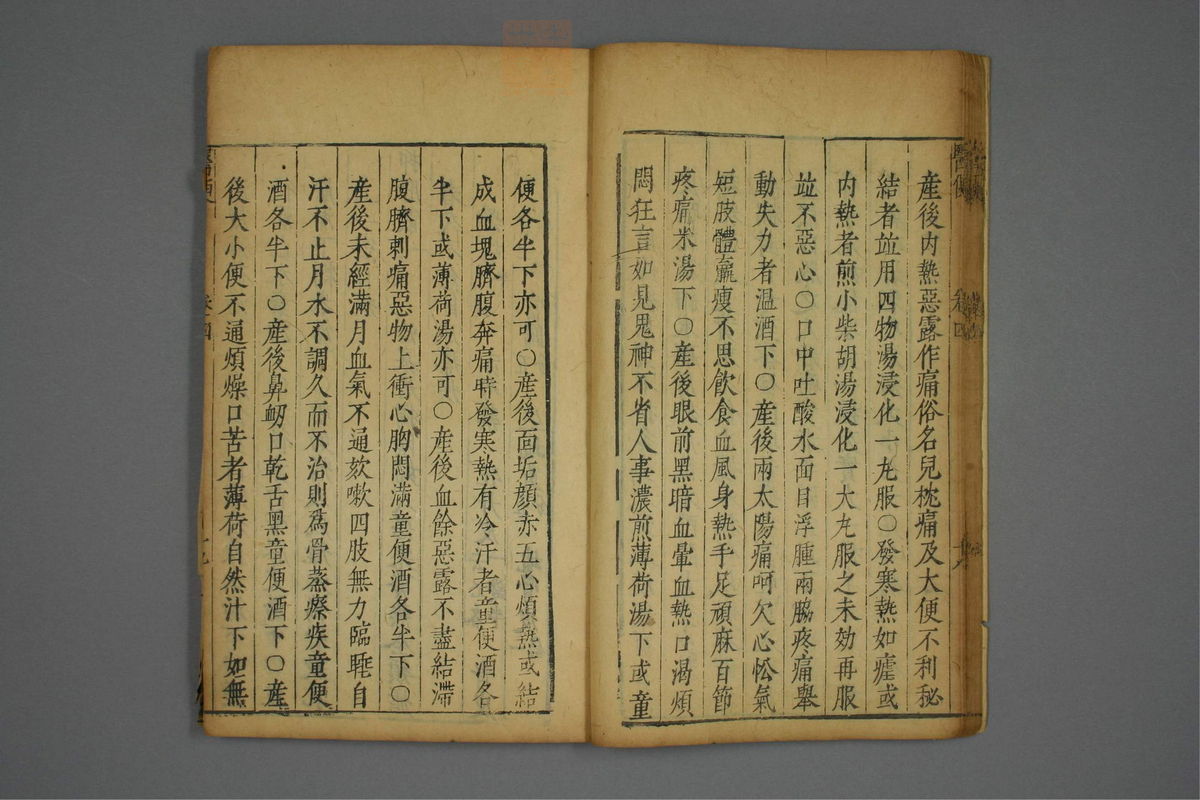 產後内熱惡露作痛俗名兒枕痛及大便不利秘
結者並用四物湯浸化一丸服○發寒熱如瘧或
内熱者煎小柴胡湯浸化一大丸服之未効再服
並不惡心○口中吐酸水面目浮腫兩脇疼痛舉
動失力者温酒下○產後兩太陽痛呵欠心忪氣
短肢體羸瘦不思飲食血風身熱手足頑麻百節
疼痛米湯下○產後眼前黑暗血暈血熱口渴煩
悶狂言如見鬼神不省人事濃煎薄荷湯下或童
便各半下亦可○產後面垢顔赤五心煩熱或結
成血塊臍腹奔痛時發寒熱有冷汗者童便酒各
半下或薄荷湯亦可○產後血餘惡露不盡結滯
腹臍刺痛惡物上衝心胸悶滿童便酒各半下○
產後未經滿月血氣不通欬嗽四肢無力臨睡自
汗不止月水不調久而不治則爲骨蒸瘵疾童便
酒各半下○產後鼻衂口乾舌黑童便酒下○產
後大小便不通煩燥口苦者薄荷自然汁下如無